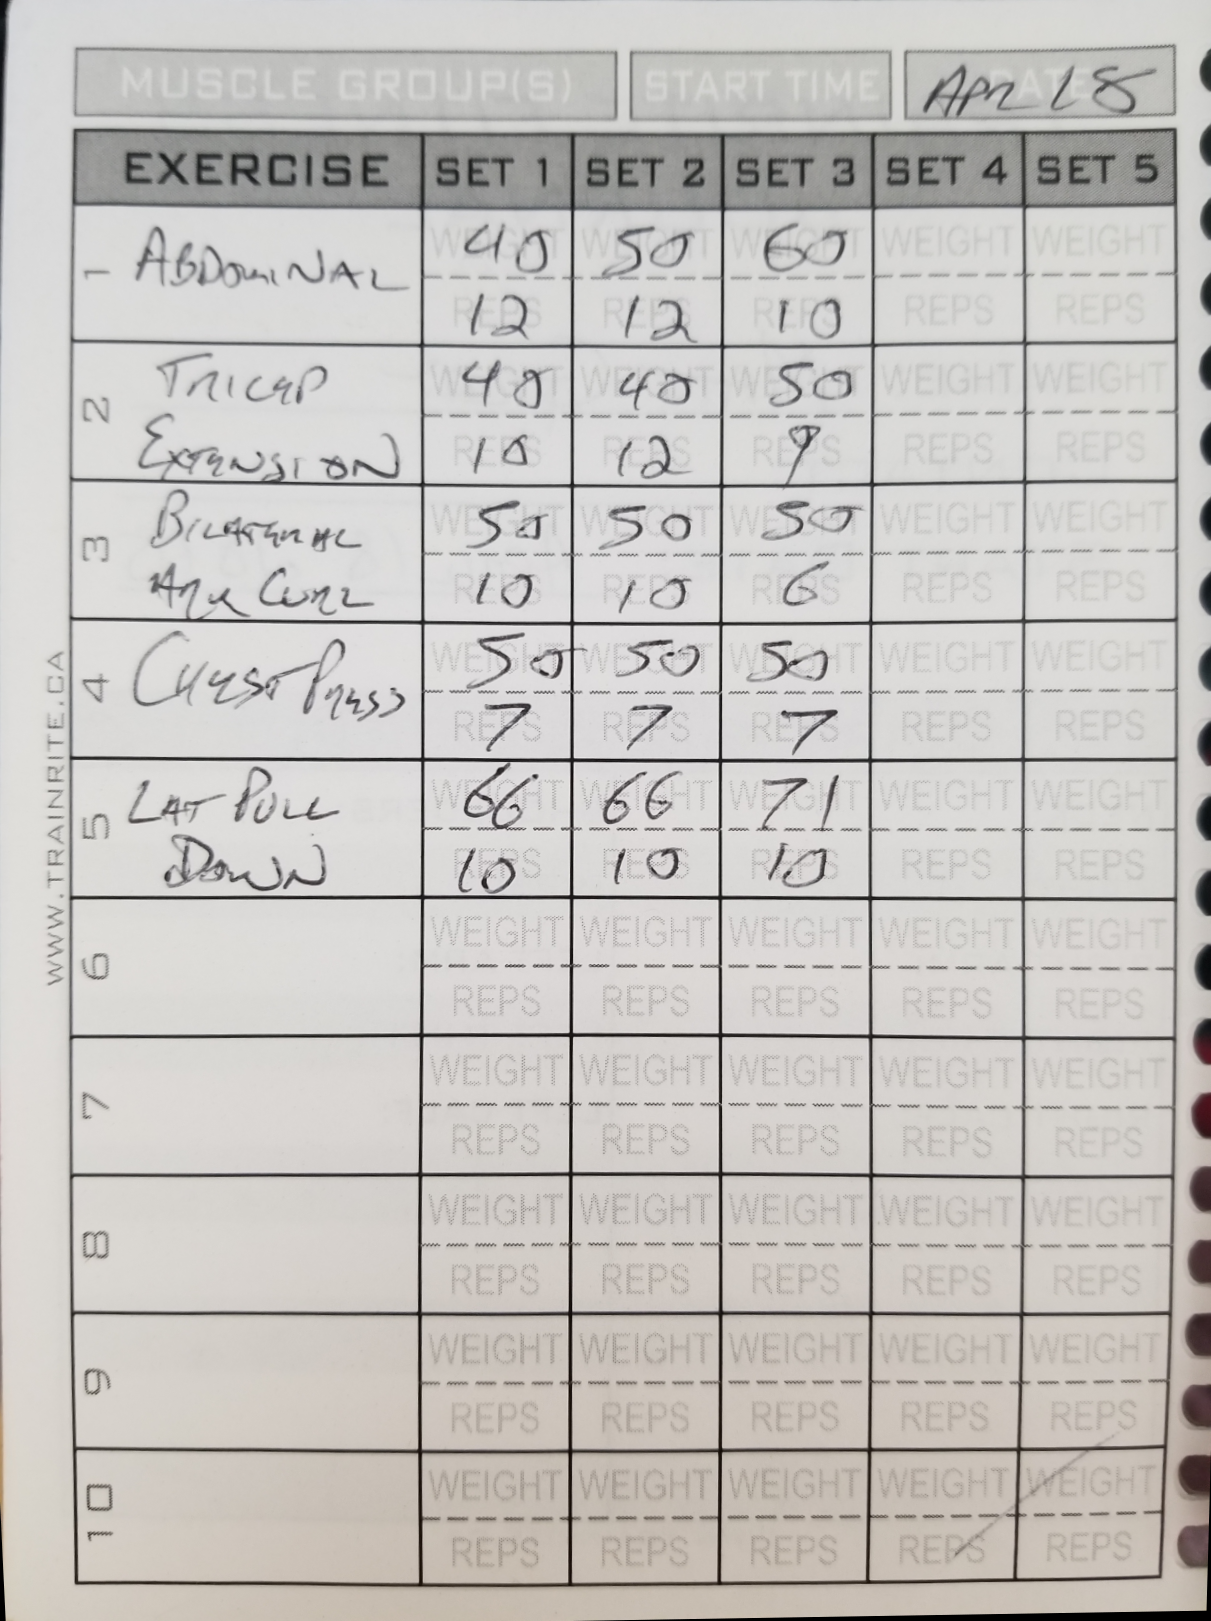 MUSCLE GROUP(S) START TIME DATE APR 18
EXERCISE SET 1 SET 2 SET 3 SET 4 SET 5
1 ABDOMINAL WEIGHT 40 WEIGHT 50 WEIGHT 60 WEIGHT WEIGHT
REPS 12 REPS 12 REPS 10 REPS REPS
2 TRICEP WEIGHT 40 WEIGHT 40 WEIGHT 50 WEIGHT WEIGHT
EXTENSION REPS 10 REPS 12 REPS 9 REPS REPS
3 BILATERAL WEIGHT 50 WEIGHT 50 WEIGHT 50 WEIGHT WEIGHT
ARM CURL REPS 10 REPS 10 REPS 6 REPS REPS
4 CHEST PRESS WEIGHT 50 WEIGHT 50 WEIGHT 50 WEIGHT WEIGHT
REPS 7 REPS 7 REPS 7 REPS REPS
5 LAT PULL WEIGHT 66 WEIGHT 66 WEIGHT 71 WEIGHT WEIGHT
DOWN REPS 10 REPS 10 REPS 10 REPS REPS
6 WEIGHT WEIGHT WEIGHT WEIGHT WEIGHT
REPS REPS REPS REPS REPS
7 WEIGHT WEIGHT WEIGHT WEIGHT WEIGHT
REPS REPS REPS REPS REPS
8 WEIGHT WEIGHT WEIGHT WEIGHT WEIGHT
REPS REPS REPS REPS REPS
9 WEIGHT WEIGHT WEIGHT WEIGHT WEIGHT
REPS REPS REPS REPS REPS
10 WEIGHT WEIGHT WEIGHT WEIGHT WEIGHT
REPS REPS REPS REPS REPS
WWW.TRAINRITE.CA